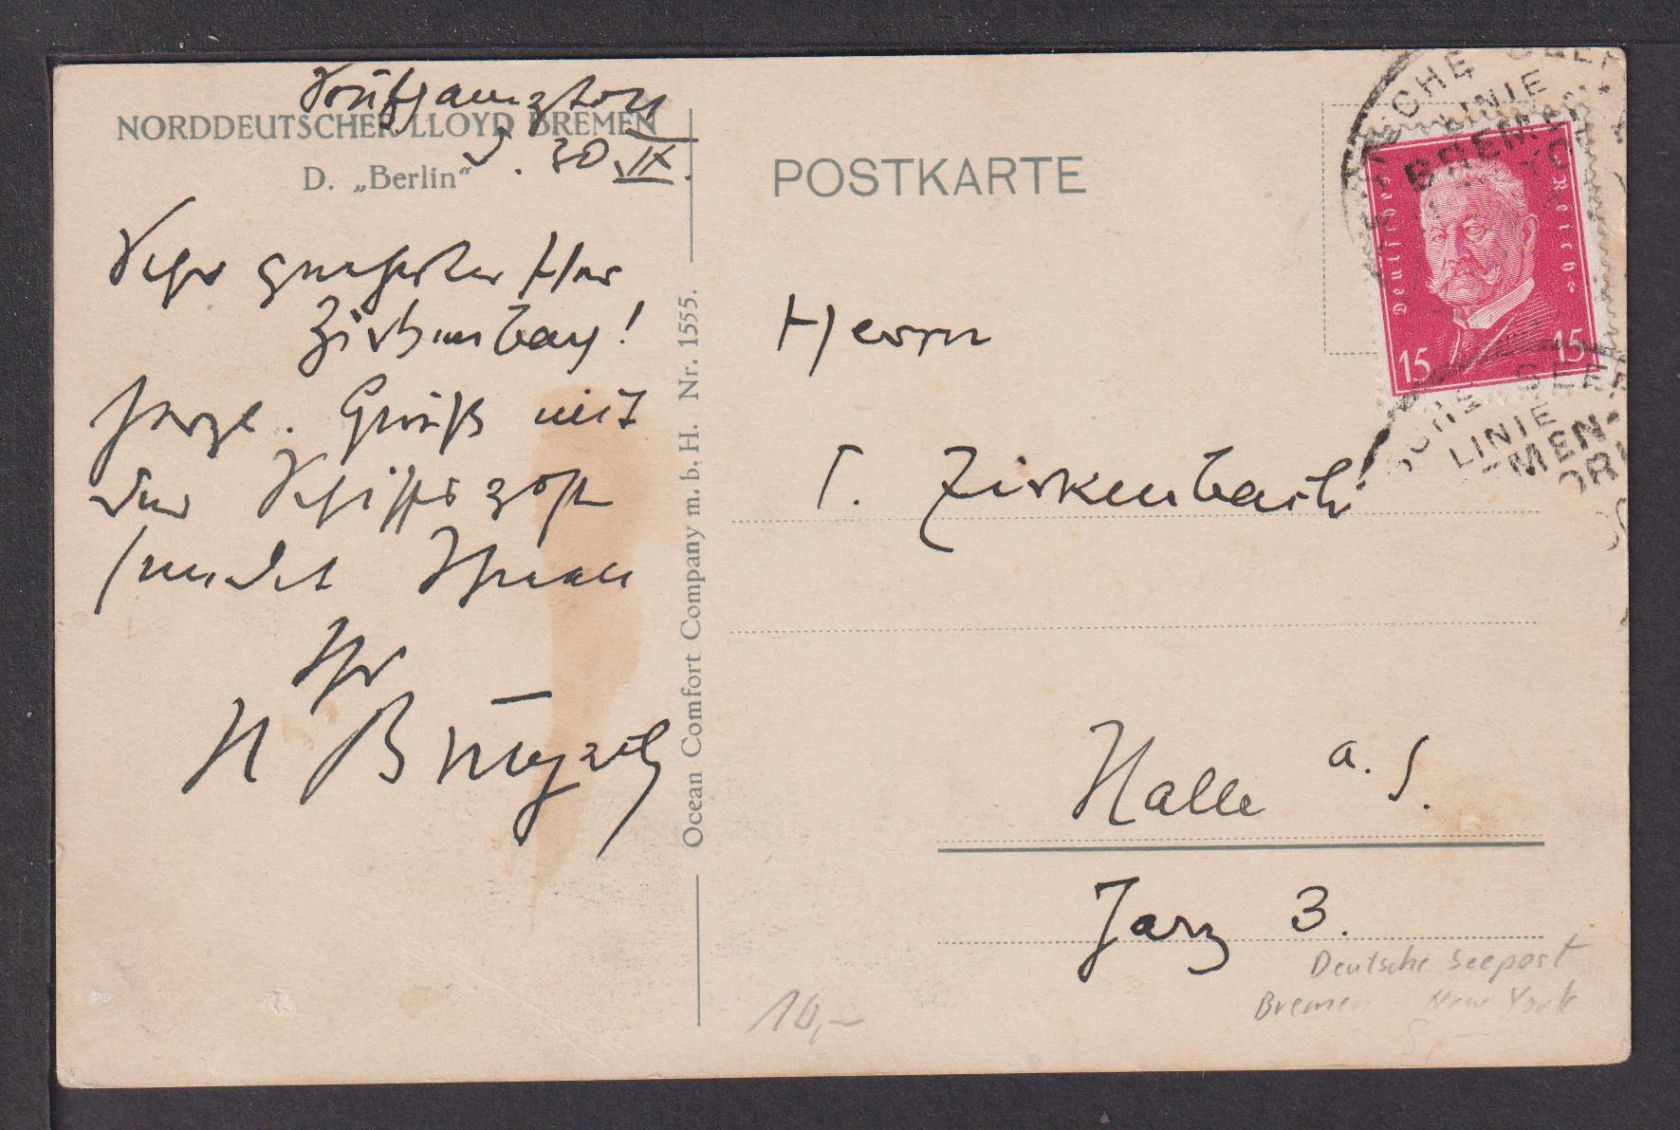 Southampton
NORDDEUTSCHER LLOYD BREMEN
D. „Berlin“
30. IX.
Sehr geehrter Herr
Zirkenbach!
herzl. Grüße mit
der Schiffspost
sendet Ihnen
Ihr
H
Ocean Comfort Company m. b. H. Nr. 1555.
POSTKARTE
Deutsches Reich
15 15
LINIE
BREMEN-
LINIE
Herrn
T. Zirkenbach
Halle a. S.
Harz 3.
Deutsche Seepost
Bremen - New York
10,-
5,-